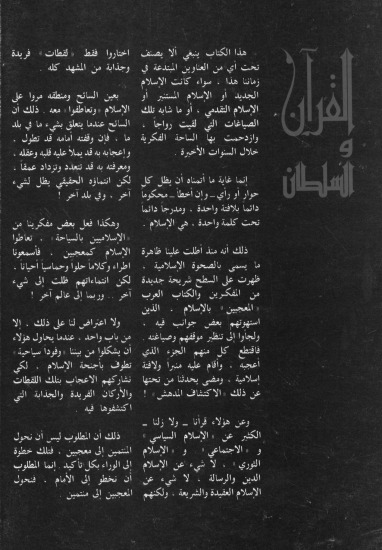 القرآن
و
السلطان
« هذا الكتاب ينبغي ألا يصنف
تحت أي من العناوين المبتدعة في
زماننا هذا ، سواء كانت الإسلام
الجديد أو الإسلام المستنير أو
الإسلام التقدمي ، أو ما شابه تلك
الصياغات التي لقيت رواجاً ،
وازدحمت بها الساحة الفكرية
خلال السنوات الأخيرة .
إنما غاية ما أتمناه أن يظل كل
حوار أو رأي ـ وإن أخطأ ـ محكوماً
دائماً بلافتة واحدة ، ومدرجاً دائماً
تحت كلمة واحدة ، هي الإسلام .
ذلك أنه منذ أطلت علينا ظاهرة
ما يسمى بالصحوة الإسلامية ،
ظهرت على السطح شريحة جديدة
من المفكرين والكتاب العرب
« المعجبين » بالإسلام ، الذين
استهوتهم بعض جوانب فيه ،
ولجأوا إلى تنظير موقفهم وصياغته .
فاقتطع كل منهم الجزء الذي
أعجبه ، وأقام عليه منبراً ولافتة
إسلامية ، ومضى يحدثنا من تحتها
عن ذلك « الاكتشاف المدهش » !
وعن هؤلاء قرأنا ـ ولا زلنا ـ
الكثير عن « الإسلام السياسي »
و « الاجتماعي » و « الإسلام
الثوري » . لا شيء عن الإسلام
الدين والرسالة ، لا شيء عن
الإسلام العقيدة والشريعة ، ولكنهم
اختاروا فقط « لقطات » فريدة
وجذابة من المشهد كله .
بعين السائح ومنطقه مروا على
الإسلام « وتعاطفوا » معه . ذلك أن
السائح عندما يتعلق بشيء ما في بلد
ما ، فإن وقفته أمامه قد تطول ،
وإعجابه به قد يملأ عليه قلبه وعقله ،
ومعرفته به قد تتعدد وتزداد عمقاً ،
لكن انتماؤه الحقيقي يظل لشيء
آخر . وفي بلد آخر !
وهكذا فعل بعض مفكرينا من
« الإسلاميين بالسياحة » . تعاطوا
الإسلام كمعجبين ، فأسمعونا
اطراء وكلاماً حلوا وحماسياً أحياناً ،
لكن انتماءاتهم ظلت إلى شيء
آخر .. وربما إلى عالم آخر !
ولا اعتراض لنا على ذلك . إلا
من باب واحد ، عندما يحاول هؤلاء
أن يشكلوا من بيننا « وفودا سياحية »
تطوف بأجنحة الإسلام ، لكي
نشاركهم الاعجاب بتلك اللقطات
والأركان الفريدة والجذابة التي
اكتشفوها فيه .
ذلك أن المطلوب ليس أن نحول
المنتمين إلى معجبين ، فتلك خطوة
إلى الوراء بكل تأكيد . إنما المطلوب
أن نخطو إلى الأمام ، فنحول
المعجبين إلى منتمين .